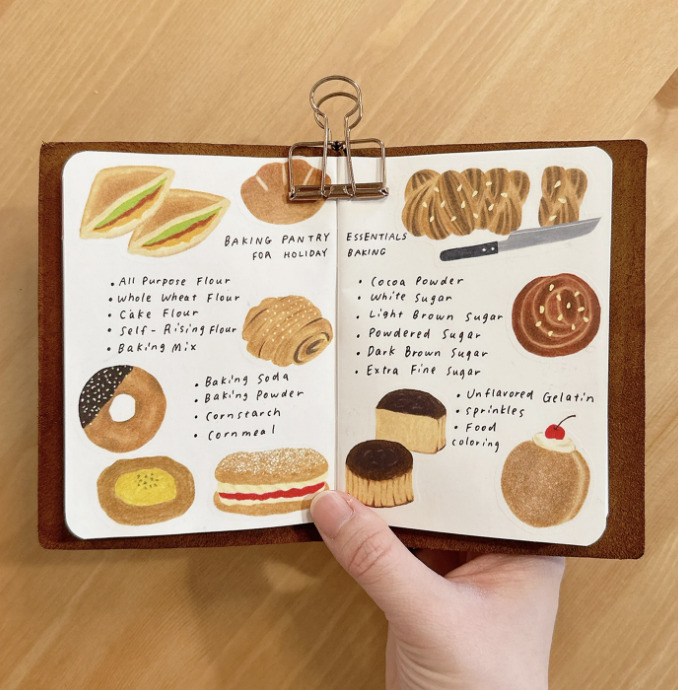 BAKING PANTRY ESSENTIALS
FOR HOLIDAY BAKING
• All Purpose Flour
• Whole Wheat Flour
• Cake Flour
• Self-Rising Flour
• Baking Mix
• Baking Soda
• Baking Powder
• Cornstarch
• Cornmeal
• Cocoa Powder
• White Sugar
• Light Brown Sugar
• Powdered Sugar
• Dark Brown Sugar
• Extra Fine Sugar
• Unflavored Gelatin
• Sprinkles
• Food
coloring